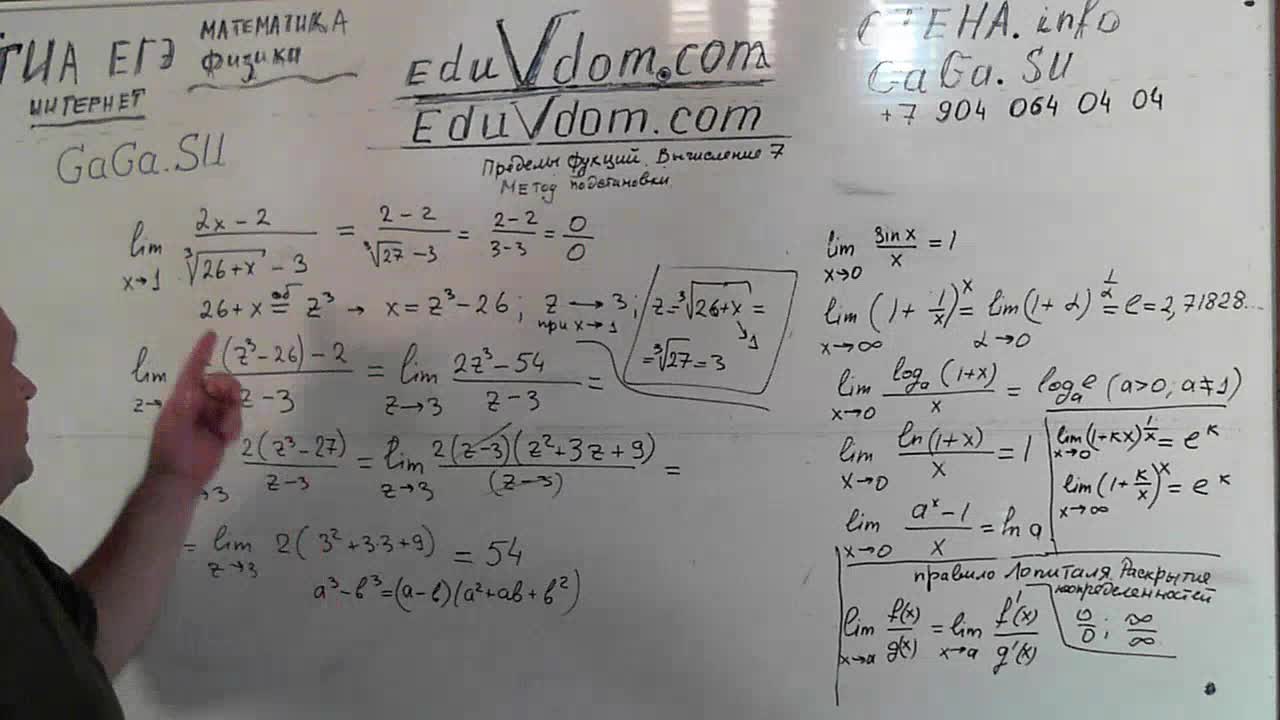 ГИА ЕГЭ МАТЕМАТИКА
физика
ИНТЕРНЕТ
GaGa.SU
EduVdom.com
EduVdom.com
Пределы фукций. Вычисление 7
Метод подстановки
СТЕНА.info
GaGa.SU
+7 904 064 04 04
lim x→1 (2x-2)/(∛(26+x) - 3) = (2-2)/(∛27 - 3) = (2-2)/(3-3) = 0/0
26+x = об z³ → x = z³-26; z → 3 при x→1; z = ∛(26+x) =
→1
= ∛27 = 3
lim z→ (z³-26)-2 / z-3 = lim z→3 (2z³-54)/(z-3) =
→3 2(z³-27)/(z-3) = lim z→3 2(z-3)(z²+3z+9)/(z-3) =
= lim z→3 2(3²+3·3+9) = 54
a³-b³=(a-b)(a²+ab+b²)
lim x→0 sin x/x = 1
lim x→∞ (1+1/x)^x = lim α→0 (1+α)^(1/α) = e = 2,71828...
lim x→0 log_a(1+x)/x = log_a e (a>0; a≠1)
lim x→0 ln(1+x)/x = 1
lim x→0 (1+kx)^(1/x) = e^k
lim x→∞ (1+k/x)^x = e^k
lim x→0 (a^x-1)/x = ln a
правило Лопиталя. Раскрытие
неопределенностей
lim x→a f(x)/g(x) = lim x→a f'(x)/g'(x) 0/0; ∞/∞